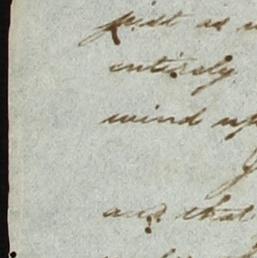 just as
entirely
wind up
and that